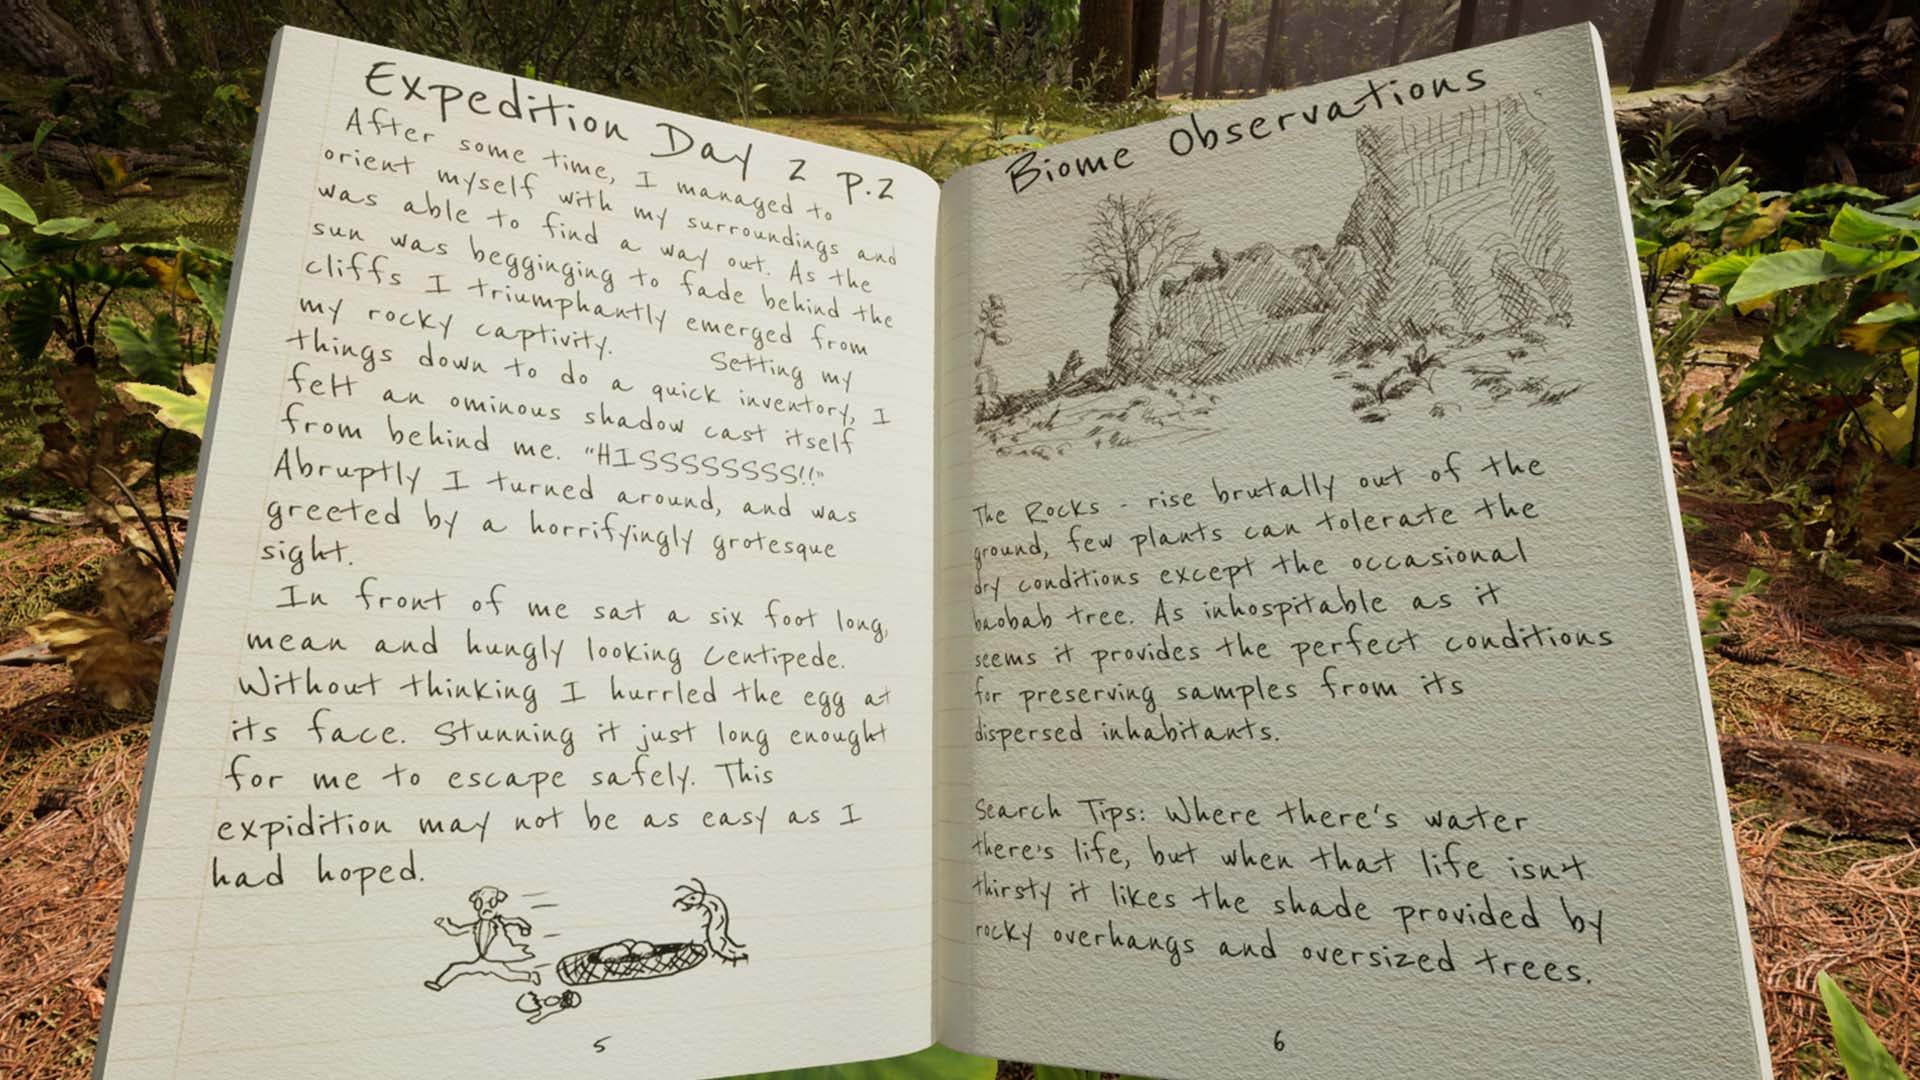 Expedition Day 2 p.2
After some time, I managed to
orient myself with my surroundings and
was able to find a way out. As the
sun was begginging to fade behind the
cliffs I triumphantly emerged from
my rocky captivity. Setting my
things down to do a quick inventory, I
felt an ominous shadow cast itself
from behind me. "HISSSSSSSS!!"
Abruptly I turned around, and was
greeted by a horrifyingly grotesque
sight.
In front of me sat a six foot long,
mean and hungly looking centipede.
Without thinking I hurrled the egg at
its face. Stunning it just long enought
for me to escape safely. This
expidition may not be as easy as I
had hoped.
5
Biome Observations
The Rocks - rise brutally out of the
ground, few plants can tolerate the
dry conditions except the occasional
baobab tree. As inhospitable as it
seems it provides the perfect conditions
for preserving samples from its
dispersed inhabitants.
Search Tips: Where there's water
there's life, but when that life isn't
thirsty it likes the shade provided by
rocky overhangs and oversized trees.
6